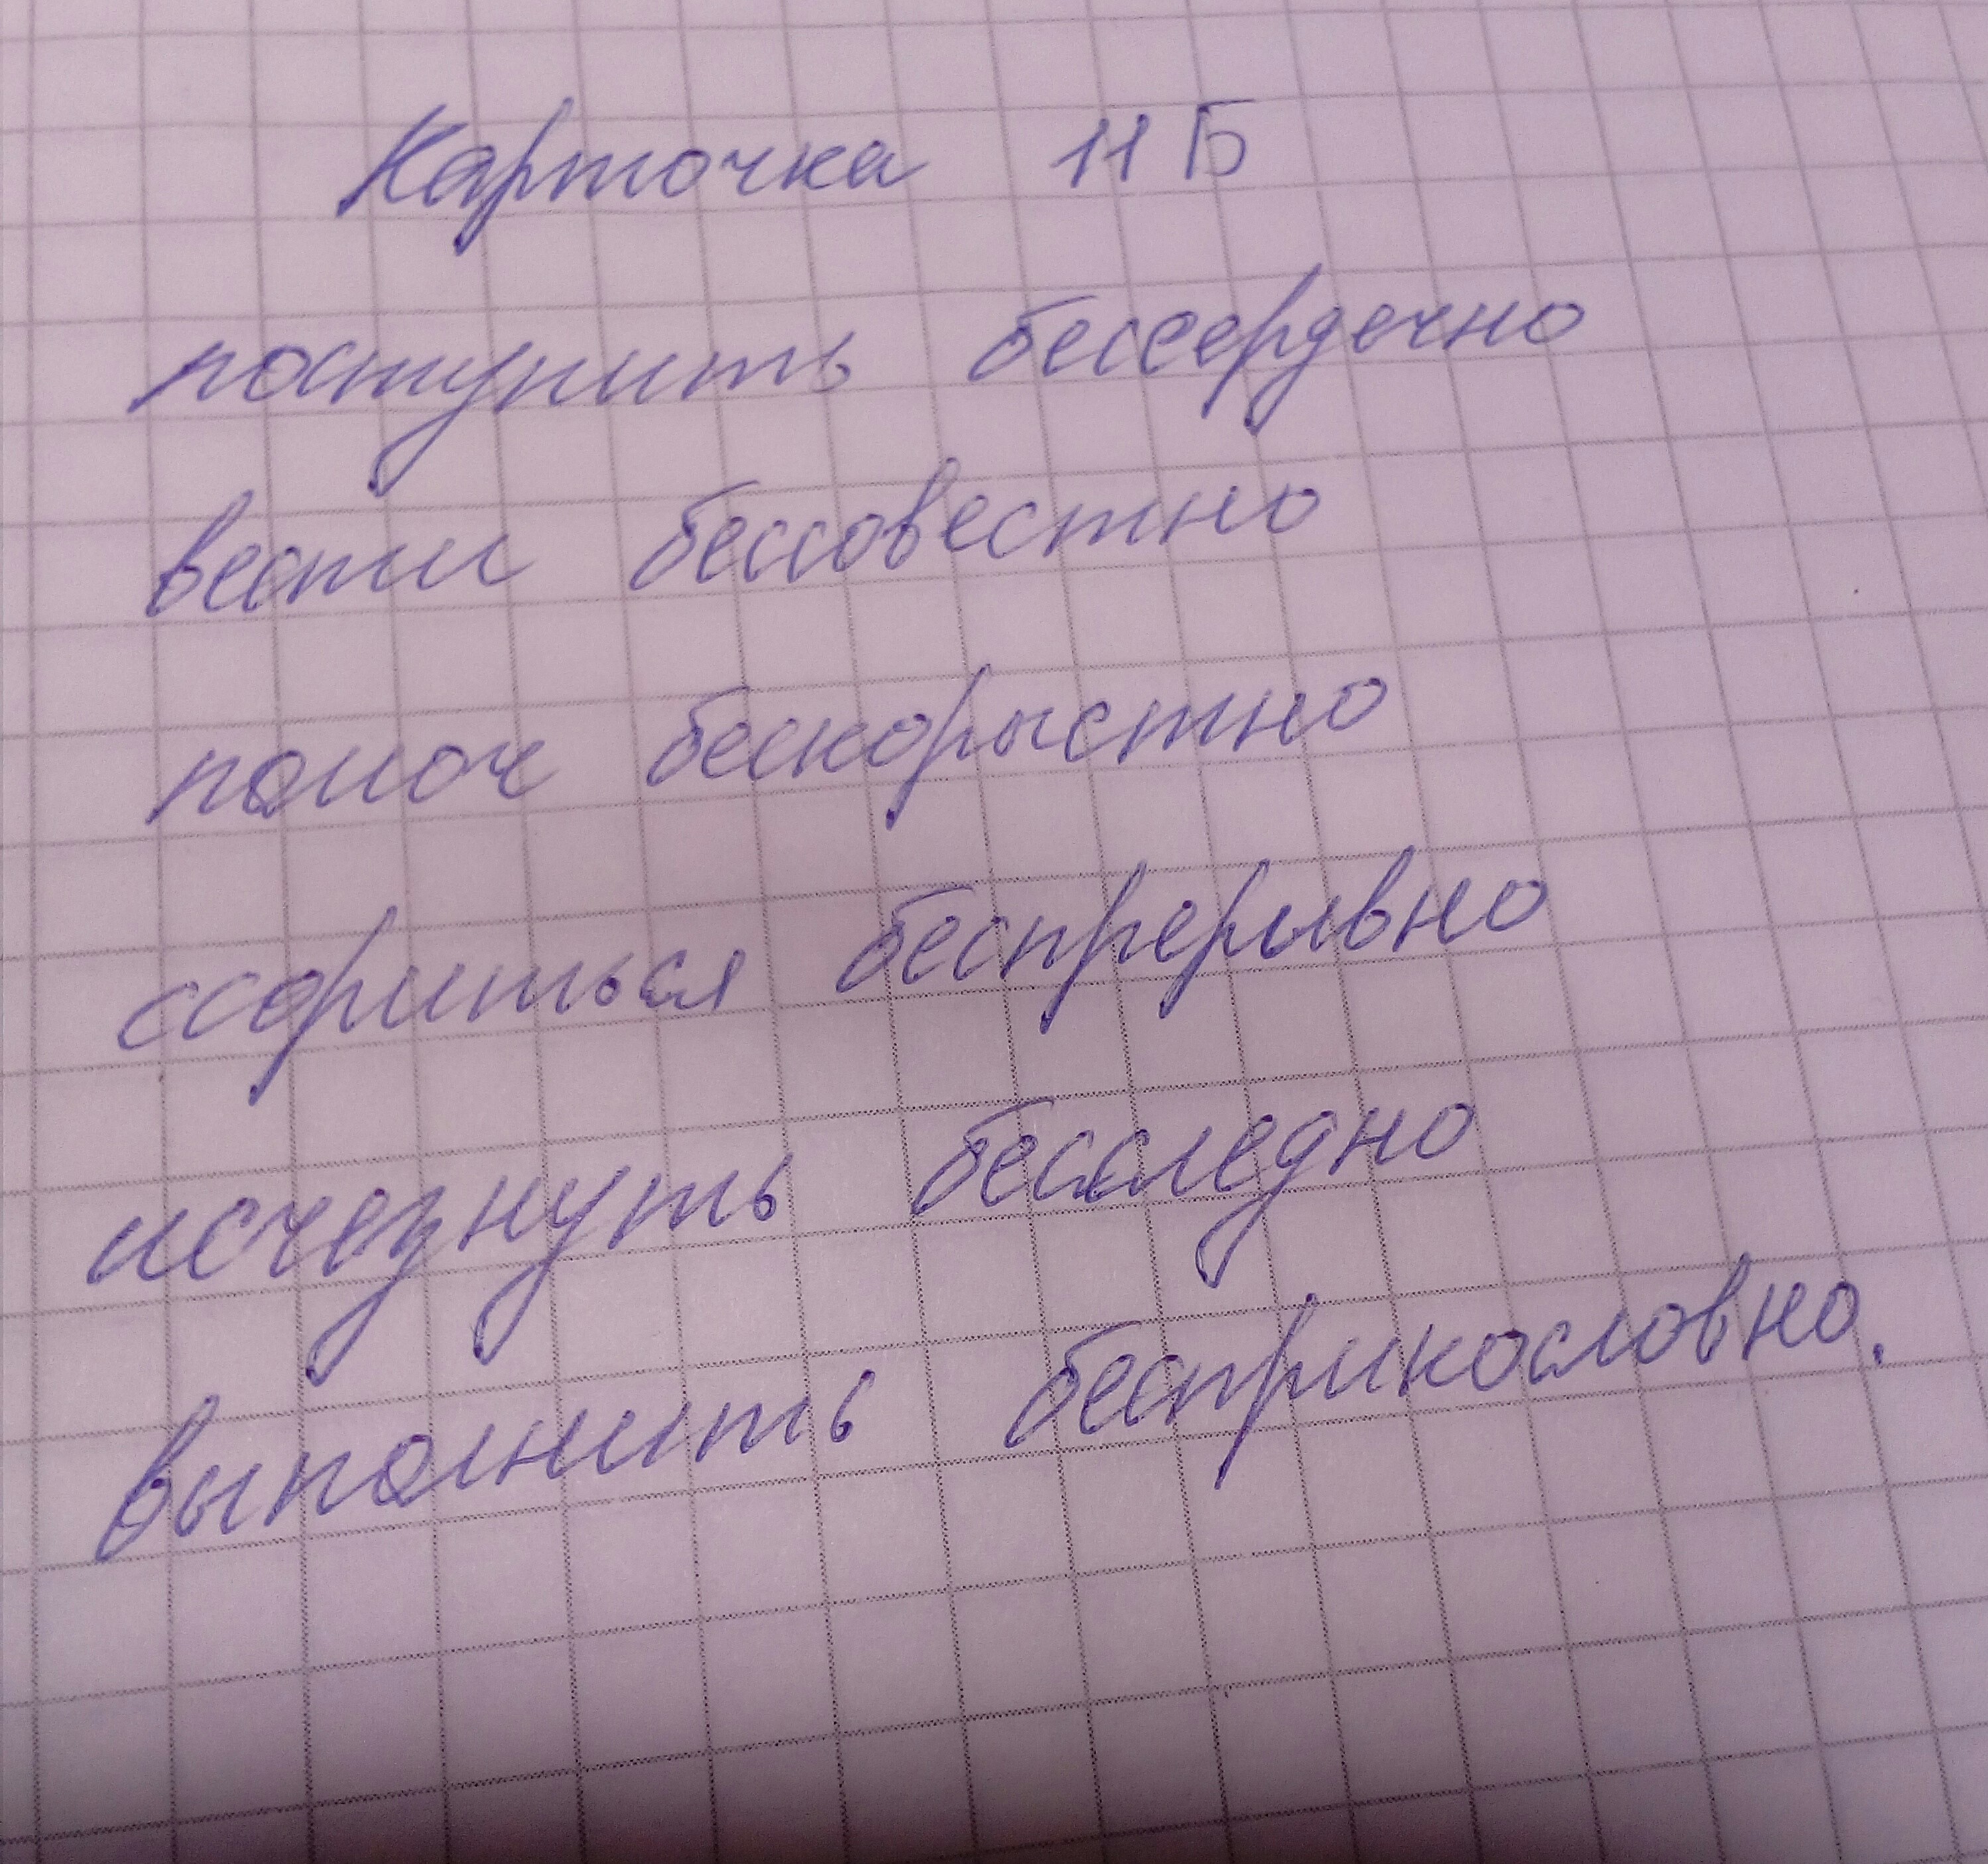 Карточка 11 Б
поступить бессердечно
вести бессовестно
помоч бескорыстно
ссориться беспрерывно
исчезнуть бесследно
выполнить бесприкословно.